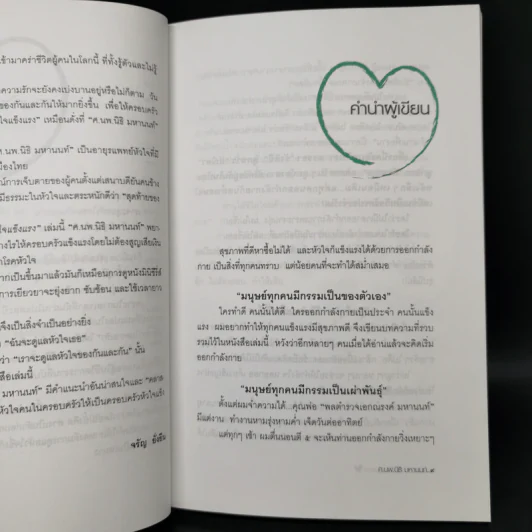 เข้ามาคร่าชีวิตผู้คนในโลกนี้ ที่ทั้งรู้ตัวและไม่รู้
ความรักจะยังคงเบ่งบานอยู่หรือไม่ก็ตาม วัน
ของกันและกันให้มากยิ่งขึ้น เพื่อให้ครอบครัว
ใจแข็งแรง" เหมือนดั่งที่ "ศ.นพ.นิธิ มหานนท์"
.นพ.นิธิ มหานนท์" เป็นอายุรแพทย์หัวใจที่มี
เมืองไทย
ณ์การเจ็บตายของผู้คนตั้งแต่เสนาบดียันคนข้าง
มีธรรมะในหัวใจและตระหนักดีว่า "สุดท้ายของ
ใจแข็งแรง" เล่มนี้ "ศ.นพ.นิธิ มหานนท์" พยา
างไรให้ครอบครัวแข็งแรงโดยไม่ต้องสูญเสียเงิน
โรคหัวใจ
ากเป็นขึ้นมาแล้วมันก็เหมือนการดูหนังมินิซีรีส์
การเยียวยาจะยุ่งยาก ซับซ้อน และใช้เวลายาว
จึงเป็นสิ่งจำเป็นอย่างยิ่ง
"ฉันจะดูแลหัวใจเธอ"
ว่า "เราจะดูแลหัวใจของกันและกัน" นั้น
สือเล่มนี้
มหานนท์" มีคำแนะนำอันน่าสนใจและ
หัวใจคนในครอบครัวให้เป็นครอบครัวหัวใจแข็ง
จรัญ
คำนำผู้เขียน
สุขภาพที่ดีหาซื้อไม่ได้ และหัวใจก็แข็งแรงได้ด้วยการออกกำลัง
กาย เป็นสิ่งที่ทุกคนทราบ แต่น้อยคนที่จะทำได้สม่ำเสมอ
"มนุษย์ทุกคนมีกรรมเป็นของตัวเอง"
ใครทำดี คนนั้นได้ดี...ใครออกกำลังกายเป็นประจำ คนนั้นแข็ง
แรง ผมอยากทำให้ทุกคนแข็งแรงมีสุขภาพดี จึงเขียนบทความที่รวบ
รวมไว้ในหนังสือเล่มนี้ หวังว่าอีกหลายๆ คนเมื่อได้อ่านแล้วจะคิดเริ่ม
ออกกำลังกาย
"มนุษย์ทุกคนมีกรรมเป็นเผ่าพันธุ์"
ตั้งแต่ผมจำความได้...คุณพ่อ "พลตำรวจเอกณรงค์ มหานนท์"
มีแต่งาน ทำงานหามรุ่งหามค่ำ เจ็ดวันต่ออาทิตย์
แต่ทุกๆ เช้า ผมตื่นนอนตี ๕ จะเห็นท่านออกกำลังกายวิ่งเหยาะๆ
ศ.นพ.นิธิ มหานนท์